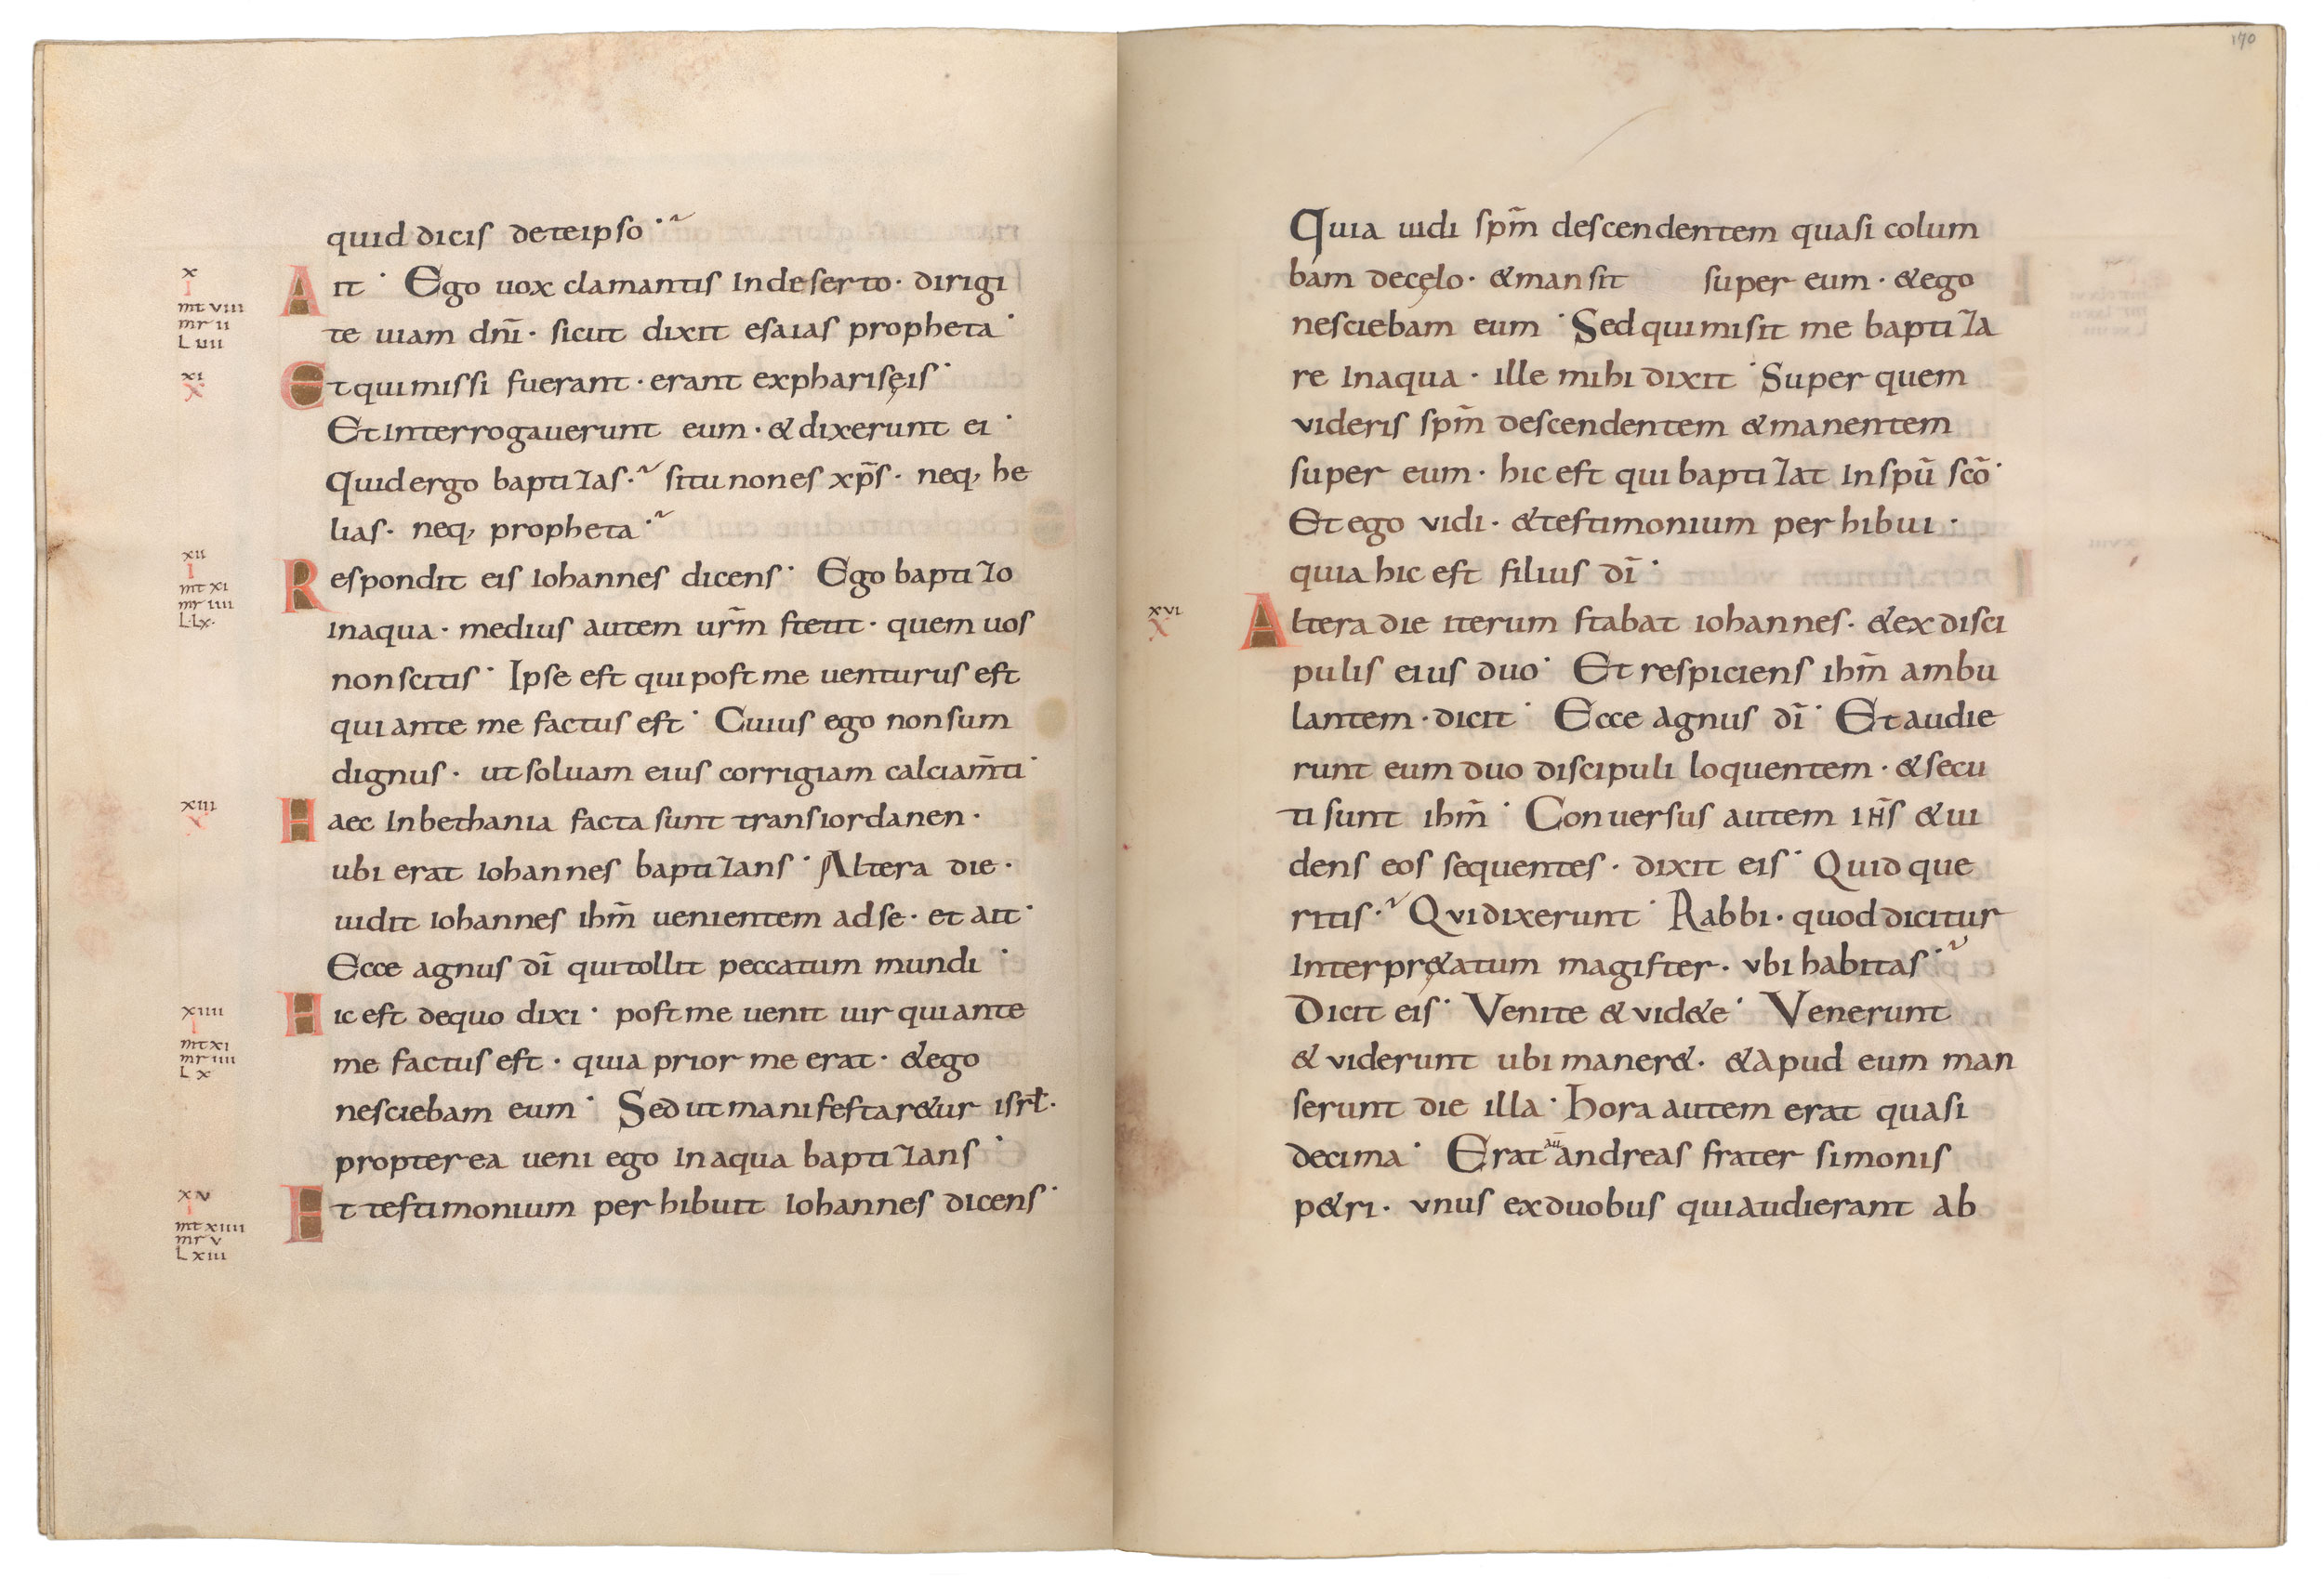 quid dicis deteipso
x
I
mt viii
mr ii
L uii
Ait · Ego uox clamantis Indeserto · dirigi
te uiam dñi · sicut dixit esaias propheta ·
xi
X
Et quimissi fuerant · erant exphariseis ·
Et Interrogauerunt eum · & dixerunt ei ·
Quidergo baptizas · situ nones xp̄s · neq, he
lias · neq, propheta ·
xii
I
mt xi
mr iiii
L · Lx ·
Respondit eis Iohannes dicens · Ego baptizo
Inaqua · medius autem ur̄m stetit · quem uos
nonscitis · Ipse est qui post me uenturus est
qui ante me factus est · Cuius ego nonsum
dignus · ut soluam eius corrigiam calciam̄ti ·
xiii
X
Haec Inbethania facta sunt transiordanen ·
ubi erat Iohannes baptizans · Altera die ·
uidit Iohannes ihm̄ uenientem adse · et ait ·
Ecce agnus dī quitollit peccatum mundi ·
xiiii
I
mt xi
mr iiii
L x
Hic est dequo dixi · post me uenit uir quiante
me factus est · quia prior me erat · & ego
nesciebam eum · Sed ut manifestar&ur isrł ·
propterea ueni ego Inaqua baptizans ·
xv
I
mt xiiii
mr v
L xiii
Et testimonium perhibuit Iohannes dicens ·
170
Quia uidi sp̄m descendentem quasi colum
bam decęlo · & mansit super eum · & ego
nesciebam eum · Sed qui misit me baptiza
re Inaqua · ille mihi dixit · Super quem
videris sp̄m descendentem & manentem
super eum · hic est qui baptizat Inspū scō ·
Et ego vidi · & testimonium perhibui ·
quia hic est filius dī ·
xvi
X
Altera die iterum stabat iohannes · & ex disci
pulis eius duo · Et respiciens ihm̄ ambu
lantem · dicit · Ecce agnus dī · Et audie
runt eum duo discipuli loquentem · & secu
ti sunt ihm̄ · Conuersus autem IHS̄ & ui
dens eos sequentes · dixit eis · Quid que
ritis · Qui dixerunt · Rabbi · quod dicitur
Interpr&atum magister · vbi habitas ·
Dicit eis · Venite & vid&e · Venerunt
& viderunt ubi maner& · & apud eum man
serunt die illa · hora autem erat quasi
decima · Erat aū andreas frater simonis
p&ri · vnus exduobus qui audierant ab